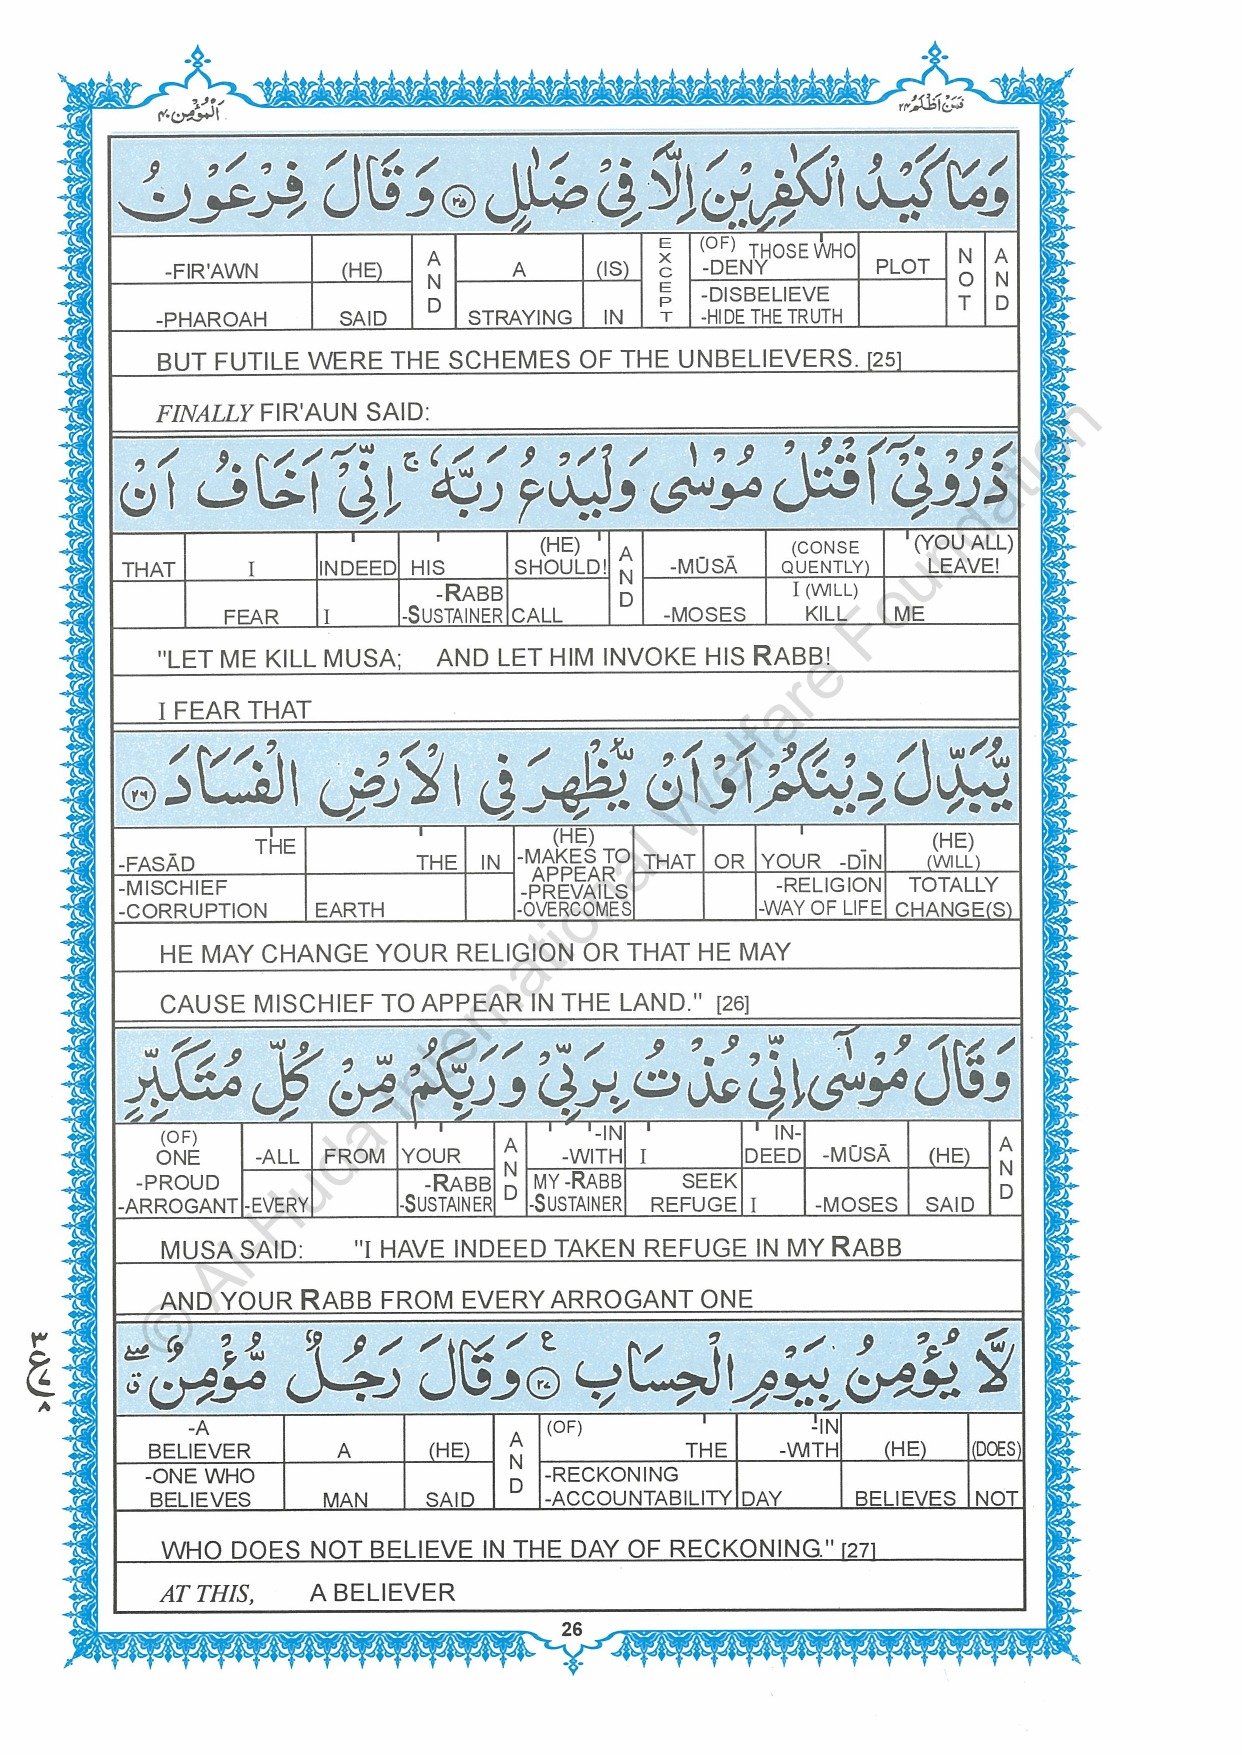 اَلْمُؤْمِن ٤٠
فَمَنْ اَظْلَمُ ٢٤
وَمَا كَيْدُ الْكٰفِرِيْنَ اِلَّا فِيْ ضَلٰلٍ ﴿٢٥﴾ وَقَالَ فِرْعَوْنُ
-FIR'AWN (HE) AND A (IS) EXCEPT (OF) THOSE WHO -DENY PLOT NOT AND
-PHAROAH SAID STRAYING IN -DISBELIEVE -HIDE THE TRUTH
BUT FUTILE WERE THE SCHEMES OF THE UNBELIEVERS. [25]
FINALLY FIR'AUN SAID:
ذَرُوْنِيْٓ اَقْتُلْ مُوْسٰى وَلْيَدْعُ رَبَّهٗ ۚ اِنِّيْٓ اَخَافُ اَنْ
THAT I INDEED HIS (HE) SHOULD! AND -MŪSĀ (CONSE QUENTLY) (YOU ALL) LEAVE!
FEAR I -RABB -SUSTAINER CALL -MOSES I (WILL) KILL ME
"LET ME KILL MUSA; AND LET HIM INVOKE HIS RABB!
I FEAR THAT
يُّبَدِّلَ دِيْنَكُمْ اَوْ اَنْ يُّظْهِرَ فِي الْاَرْضِ الْفَسَادَ ﴿٢٦﴾
-FASĀD THE THE IN (HE) -MAKES TO APPEAR THAT OR YOUR -DĪN (HE) (WILL)
-MISCHIEF -CORRUPTION EARTH -PREVAILS -OVERCOMES -RELIGION -WAY OF LIFE TOTALLY CHANGE(S)
HE MAY CHANGE YOUR RELIGION OR THAT HE MAY
CAUSE MISCHIEF TO APPEAR IN THE LAND." [26]
وَقَالَ مُوْسٰٓى اِنِّيْ عُذْتُ بِرَبِّيْ وَرَبِّكُمْ مِّنْ كُلِّ مُتَكَبِّرٍ
(OF) ONE -ALL FROM YOUR AND -IN -WITH I IN-DEED -MŪSĀ (HE) AND
-PROUD -ARROGANT -EVERY -RABB -SUSTAINER MY -RABB -SUSTAINER SEEK REFUGE I -MOSES SAID
MUSA SAID: "I HAVE INDEED TAKEN REFUGE IN MY RABB
AND YOUR RABB FROM EVERY ARROGANT ONE
لَّا يُؤْمِنُ بِيَوْمِ الْحِسَابِ ﴿٢٧﴾ ع وَقَالَ رَجُلٌ مُّؤْمِنٌ ۖ ق
٣
ع
٨
-A BELIEVER A (HE) AND (OF) THE -IN -WITH (HE) (DOES)
-ONE WHO BELIEVES MAN SAID -RECKONING -ACCOUNTABILITY DAY BELIEVES NOT
WHO DOES NOT BELIEVE IN THE DAY OF RECKONING." [27]
AT THIS, A BELIEVER
26
© Al-Huda International Welfare Foundation